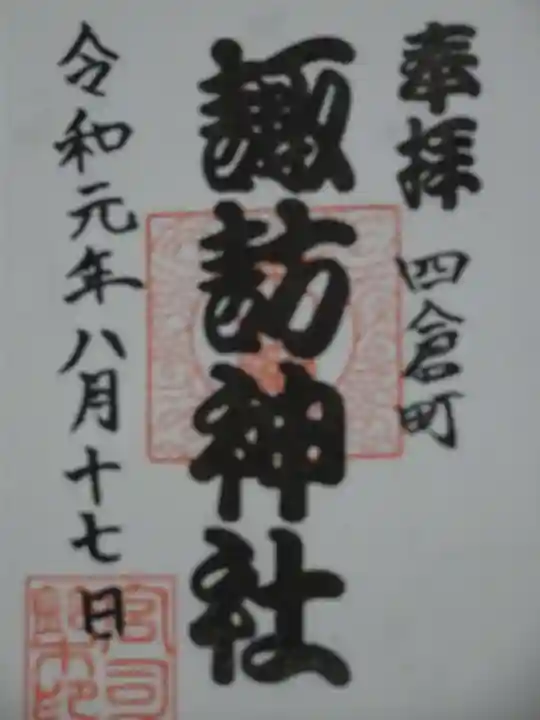 奉拝 四倉町
諏訪神社
令和元年八月十七日
宮司